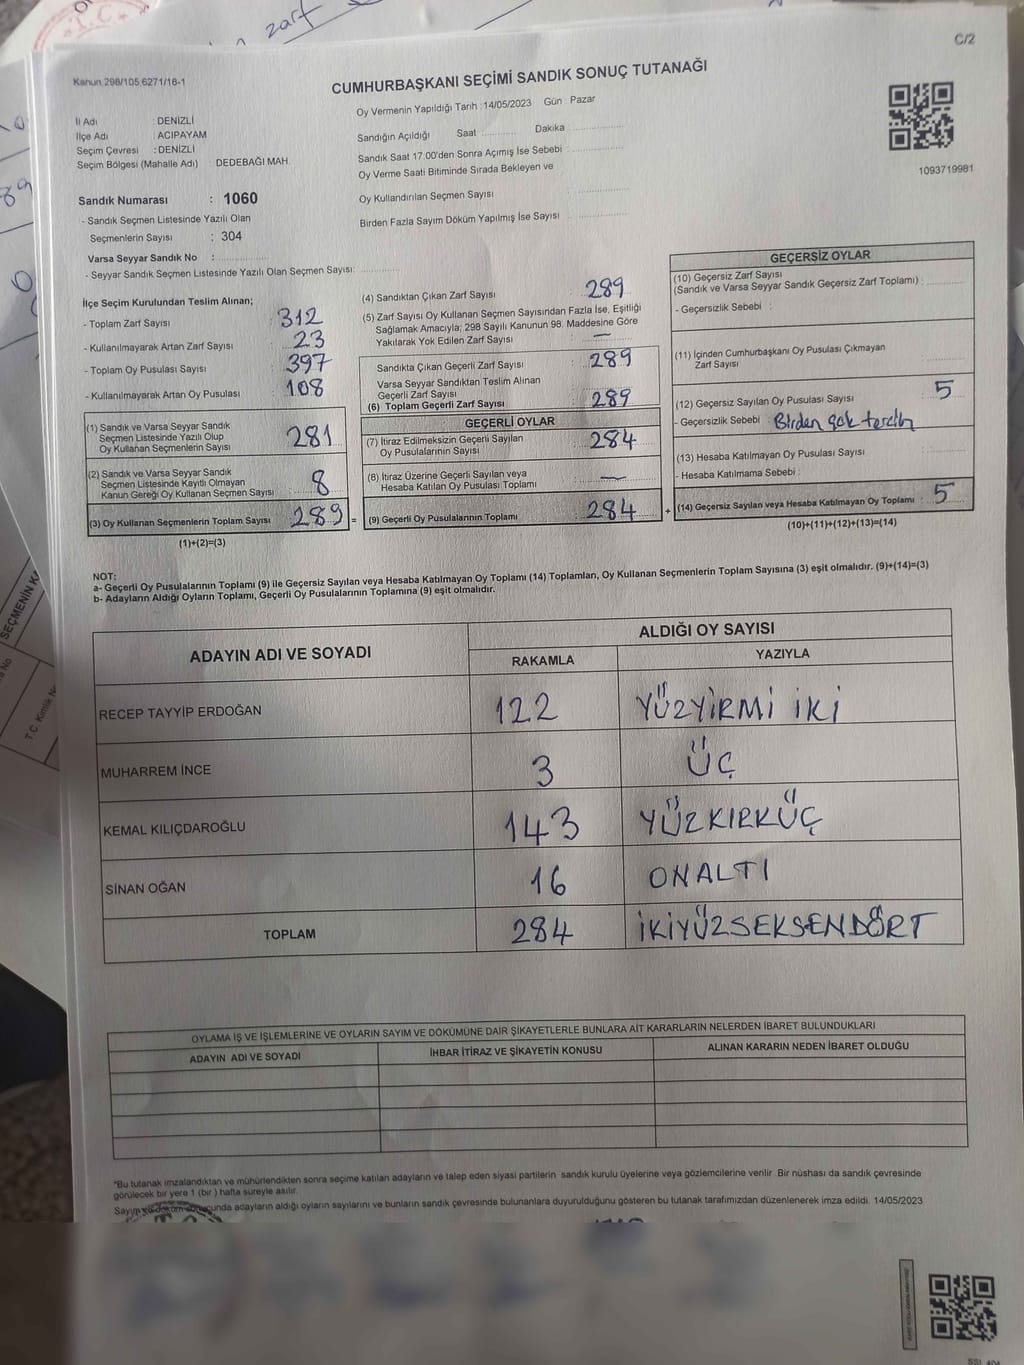 zarf
C/2
Kanun 298/105,6271/16-1
CUMHURBAŞKANI SEÇİMİ SANDIK SONUÇ TUTANAĞI
Oy Vermenin Yapıldığı Tarih :14/05/2023 Gün : Pazar
İl Adı DENİZLİ
İlçe Adı : ACIPAYAM
Seçim Çevresi : DENİZLİ
Seçim Bölgesi (Mahalle Adı) DEDEBAĞI MAH.
Sandığın Açıldığı Saat Dakika
Sandık Saat 17:00'den Sonra Açımış İse Sebebi :
Oy Verme Saati Bitiminde Sırada Bekleyen ve
Oy Kullandırılan Seçmen Sayısı
Birden Fazla Sayım Döküm Yapılmış İse Sayısı
1093719981
Sandık Numarası : 1060
- Sandık Seçmen Listesinde Yazılı Olan
Seçmenlerin Sayısı : 304
Varsa Seyyar Sandık No :
- Seyyar Sandık Seçmen Listesinde Yazılı Olan Seçmen Sayısı:
İlçe Seçim Kurulundan Teslim Alınan;
- Toplam Zarf Sayısı : 312
- Kullanılmayarak Artan Zarf Sayısı : 23
- Toplam Oy Pusulası Sayısı : 397
- Kullanılmayarak Artan Oy Pusulası : 108
(1) Sandık ve Varsa Seyyar Sandık
Seçmen Listesinde Yazılı Olup
Oy Kullanan Seçmenlerin Sayısı 281
(2) Sandık ve Varsa Seyyar Sandık
Seçmen Listesinde Kayıtlı Olmayan
Kanun Gereği Oy Kullanan Seçmen Sayısı 8
(3) Oy Kullanan Seçmenlerin Toplam Sayısı 289 =
(1)+(2)=(3)
(4) Sandıktan Çıkan Zarf Sayısı : 289
(5) Zarf Sayısı Oy Kullanan Seçmen Sayısından Fazla İse, Eşitliği
Sağlamak Amacıyla; 298 Sayılı Kanunun 98. Maddesine Göre
Yakılarak Yok Edilen Zarf Sayısı : —
Sandıkta Çıkan Geçerli Zarf Sayısı : 289
Varsa Seyyar Sandıktan Teslim Alınan
Geçerli Zarf Sayısı
(6) Toplam Geçerli Zarf Sayısı : 289
GEÇERLİ OYLAR
(7) İtiraz Edilmeksizin Geçerli Sayılan
Oy Pusulalarının Sayısı : 284
(8) İtiraz Üzerine Geçerli Sayılan veya
Hesaba Katılan Oy Pusulası Toplamı : —
(9) Geçerli Oy Pusulalarının Toplamı : 284 +
GEÇERSİZ OYLAR
(10) Geçersiz Zarf Sayısı
(Sandık ve Varsa Seyyar Sandık Geçersiz Zarf Toplamı) :
- Geçersizlik Sebebi :
(11) İçinden Cumhurbaşkanı Oy Pusulası Çıkmayan
Zarf Sayısı
(12) Geçersiz Sayılan Oy Pusulası Sayısı : 5
- Geçersizlik Sebebi : Birden çok tercih
(13) Hesaba Katılmayan Oy Pusulası Sayısı :
- Hesaba Katılmama Sebebi :
(14) Geçersiz Sayılan veya Hesaba Katılmayan Oy Toplamı : 5
(10)+(11)+(12)+(13)=(14)
NOT:
a- Geçerli Oy Pusulalarının Toplamı (9) ile Geçersiz Sayılan veya Hesaba Katılmayan Oy Toplamı (14) Toplamları, Oy Kullanan Seçmenlerin Toplam Sayısına (3) eşit olmalıdır. (9)+(14)=(3)
b- Adayların Aldığı Oyların Toplamı, Geçerli Oy Pusulalarının Toplamına (9) eşit olmalıdır.
ADAYIN ADI VE SOYADI ALDIĞI OY SAYISI
RAKAMLA YAZIYLA
RECEP TAYYİP ERDOĞAN 122 YÜZYİRMİ İKİ
MUHARREM İNCE 3 ÜÇ
KEMAL KILIÇDAROĞLU 143 YÜZKIRKÜÇ
SİNAN OĞAN 16 ONALTI
TOPLAM 284 İKİYÜZSEKSENDÖRT
OYLAMA İŞ VE İŞLEMLERİNE VE OYLARIN SAYIM VE DÖKÜMÜNE DAİR ŞİKAYETLERLE BUNLARA AİT KARARLARIN NELERDEN İBARET BULUNDUKLARI
ADAYIN ADI VE SOYADI İHBAR İTİRAZ VE ŞİKAYETİN KONUSU ALINAN KARARIN NEDEN İBARET OLDUĞU
*Bu tutanak imzalandıktan ve mühürlendikten sonra seçime katılan adayların ve talep eden siyasi partilerin sandık kurulu üyelerine veya gözlemcilerine verilir. Bir nüshası da sandık çevresinde
görülecek bir yere 1 (bir ) hafta süreyle asılır.
adayların aldığı oyların sayılarını ve bunların sandık çevresinde bulunanlara duyurulduğunu gösteren bu tutanak tarafımızdan düzenlenerek imza edildi. 14/05/2023
T.C. Kimlik